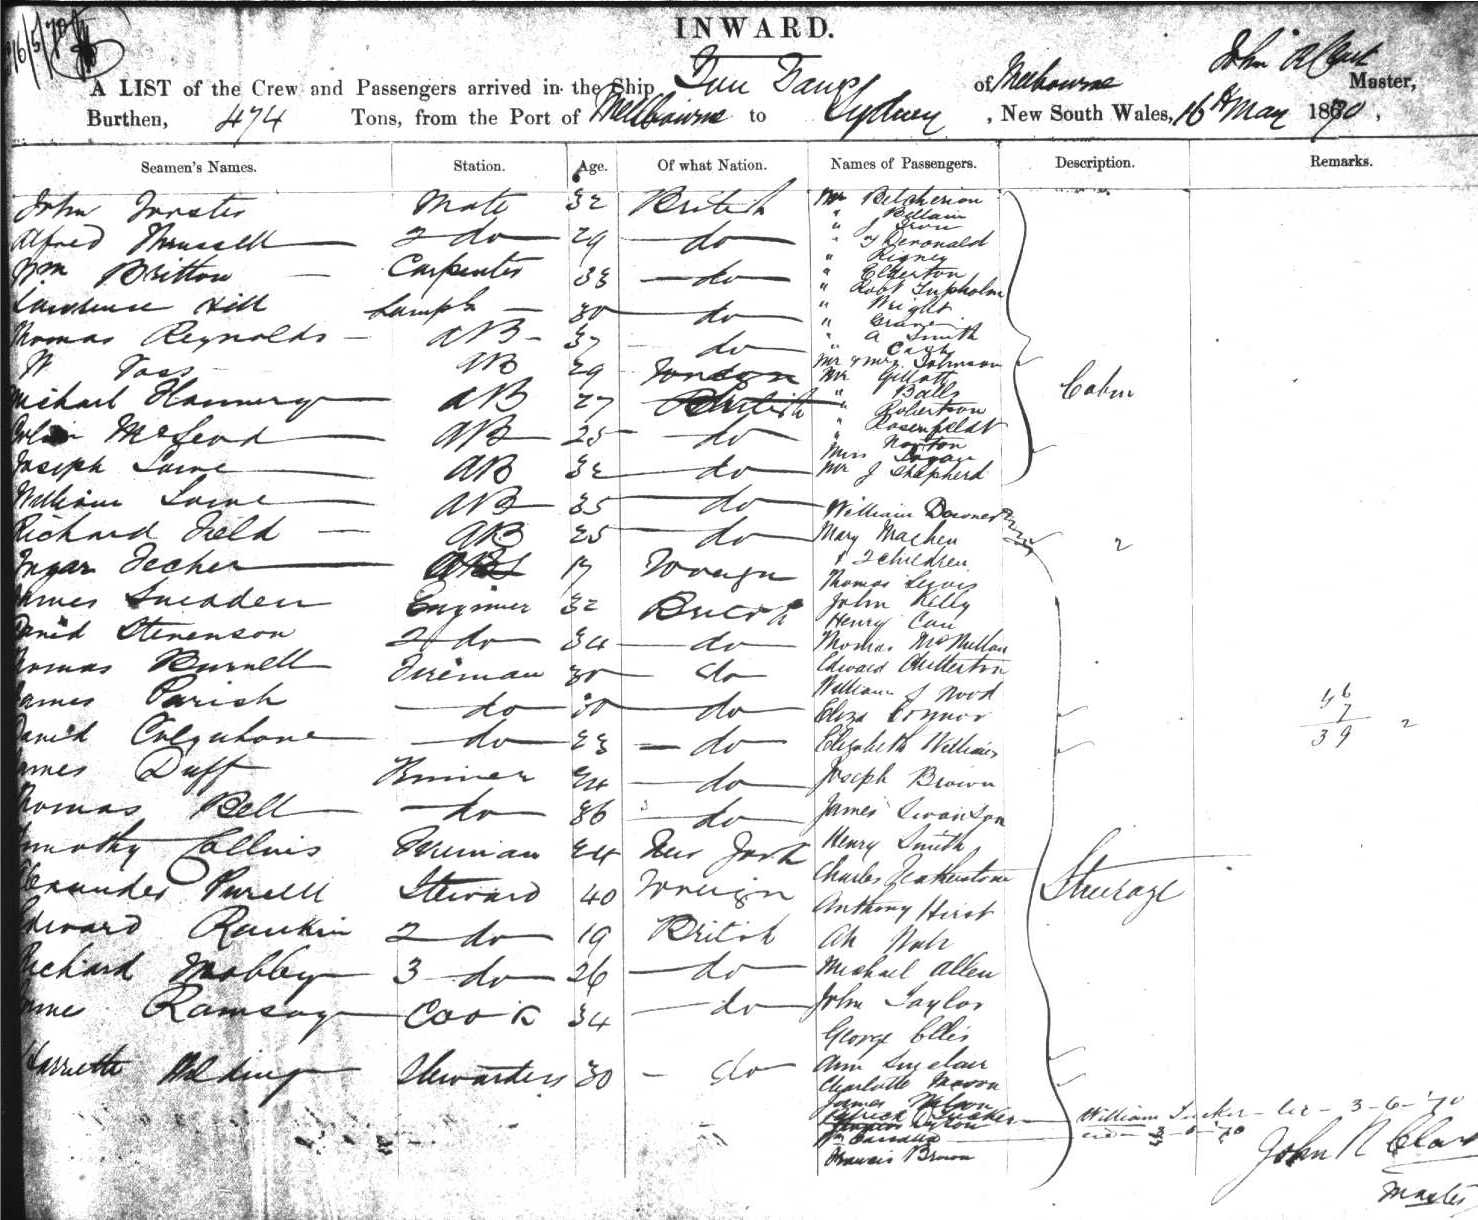 16/5/70
INWARD.
A LIST of the Crew and Passengers arrived in the Ship of Melbourne John R Clark Master,
Burthen, 474 Tons, from the Port of Mellbourne to Sydney, New South Wales, 16th May 1870,
Seamen's Names. Station. Age. Of what Nation. Names of Passengers. Description. Remarks.
John Forster Mate 32 British
Alfred Thrussell 2 do 29 do
Wm Britton Carpenter 33 do
Lawrence Hill Lamps 30 do
Thomas Reynolds AB 37 do
W Foss AB 29 Foreign
Michael Flannery AB 27 British
McLeod AB 25 do
Joseph Lowe AB 32 do
William Lowe AB 35 do
Richard Field AB 25 do
Fecher 17 Foreign
James Sneaden Engineer 32 British
David Stevenson 2 do 34 do
Thomas Burnell Fireman 30 do
James Parish do 30 do
David Colquhone do 23 do
James Duff Trimmer 24 do
Thomas Bell do 36 do
Timothy Collins Fireman 24 New York
Alexander Purell Steward 40 Foreign
Edward Rankin 2 do 19 British
Richard Mobbey 3 do 26 do
James Ramsay Cook 34 do
Harriette Stewardess 30 do
Mr Belcherion
" Bellair
" J Iron
" Deronald
" Rigney
" Elderton
" Robt Tupholm
" Wright
" Grane
" A Smith
" Cash
Mr & Mrs Johnson
Mr Gillott
" Balls
" Robertson
" Rosenfeldt
" Norton
Miss Logan
Mr J Shepherd
Cabin
William Downes
Mary Machen
& 2 children
2
Thomas Lewis
John Kelly
Henry Cau
Thomas McMillan
Edward Chitterton
William J Wood
Eliza Connor
Elizabeth Williams
Joseph Brown
James Swanson
Henry Smith
Charles Featherstone
Anthony Hirst
Ah
Michael Allen
John Taylor
George Ellis
Ann Sinclair
Charlotte Mason
James Nelson
Patrick Tucker
Wm
Francis Brown
Steerage
46
7
39 2
William Tucker - 3-6-70
3-6-70
John R Clark
Master